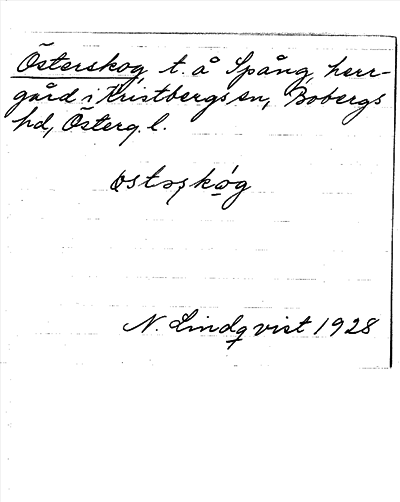 Österskog, t. å Spång, herr-
gård i Kristbergs sn, Bobergs
hd, Österg. l.
N. Lindqvist 1928